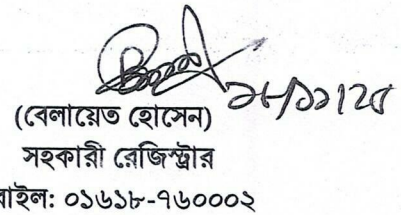 ১৮/১১/২৫
(বেলায়েত হোসেন)
সহকারী রেজিস্ট্রার
বাইল: ০১৬১৮-৭৬০০০২